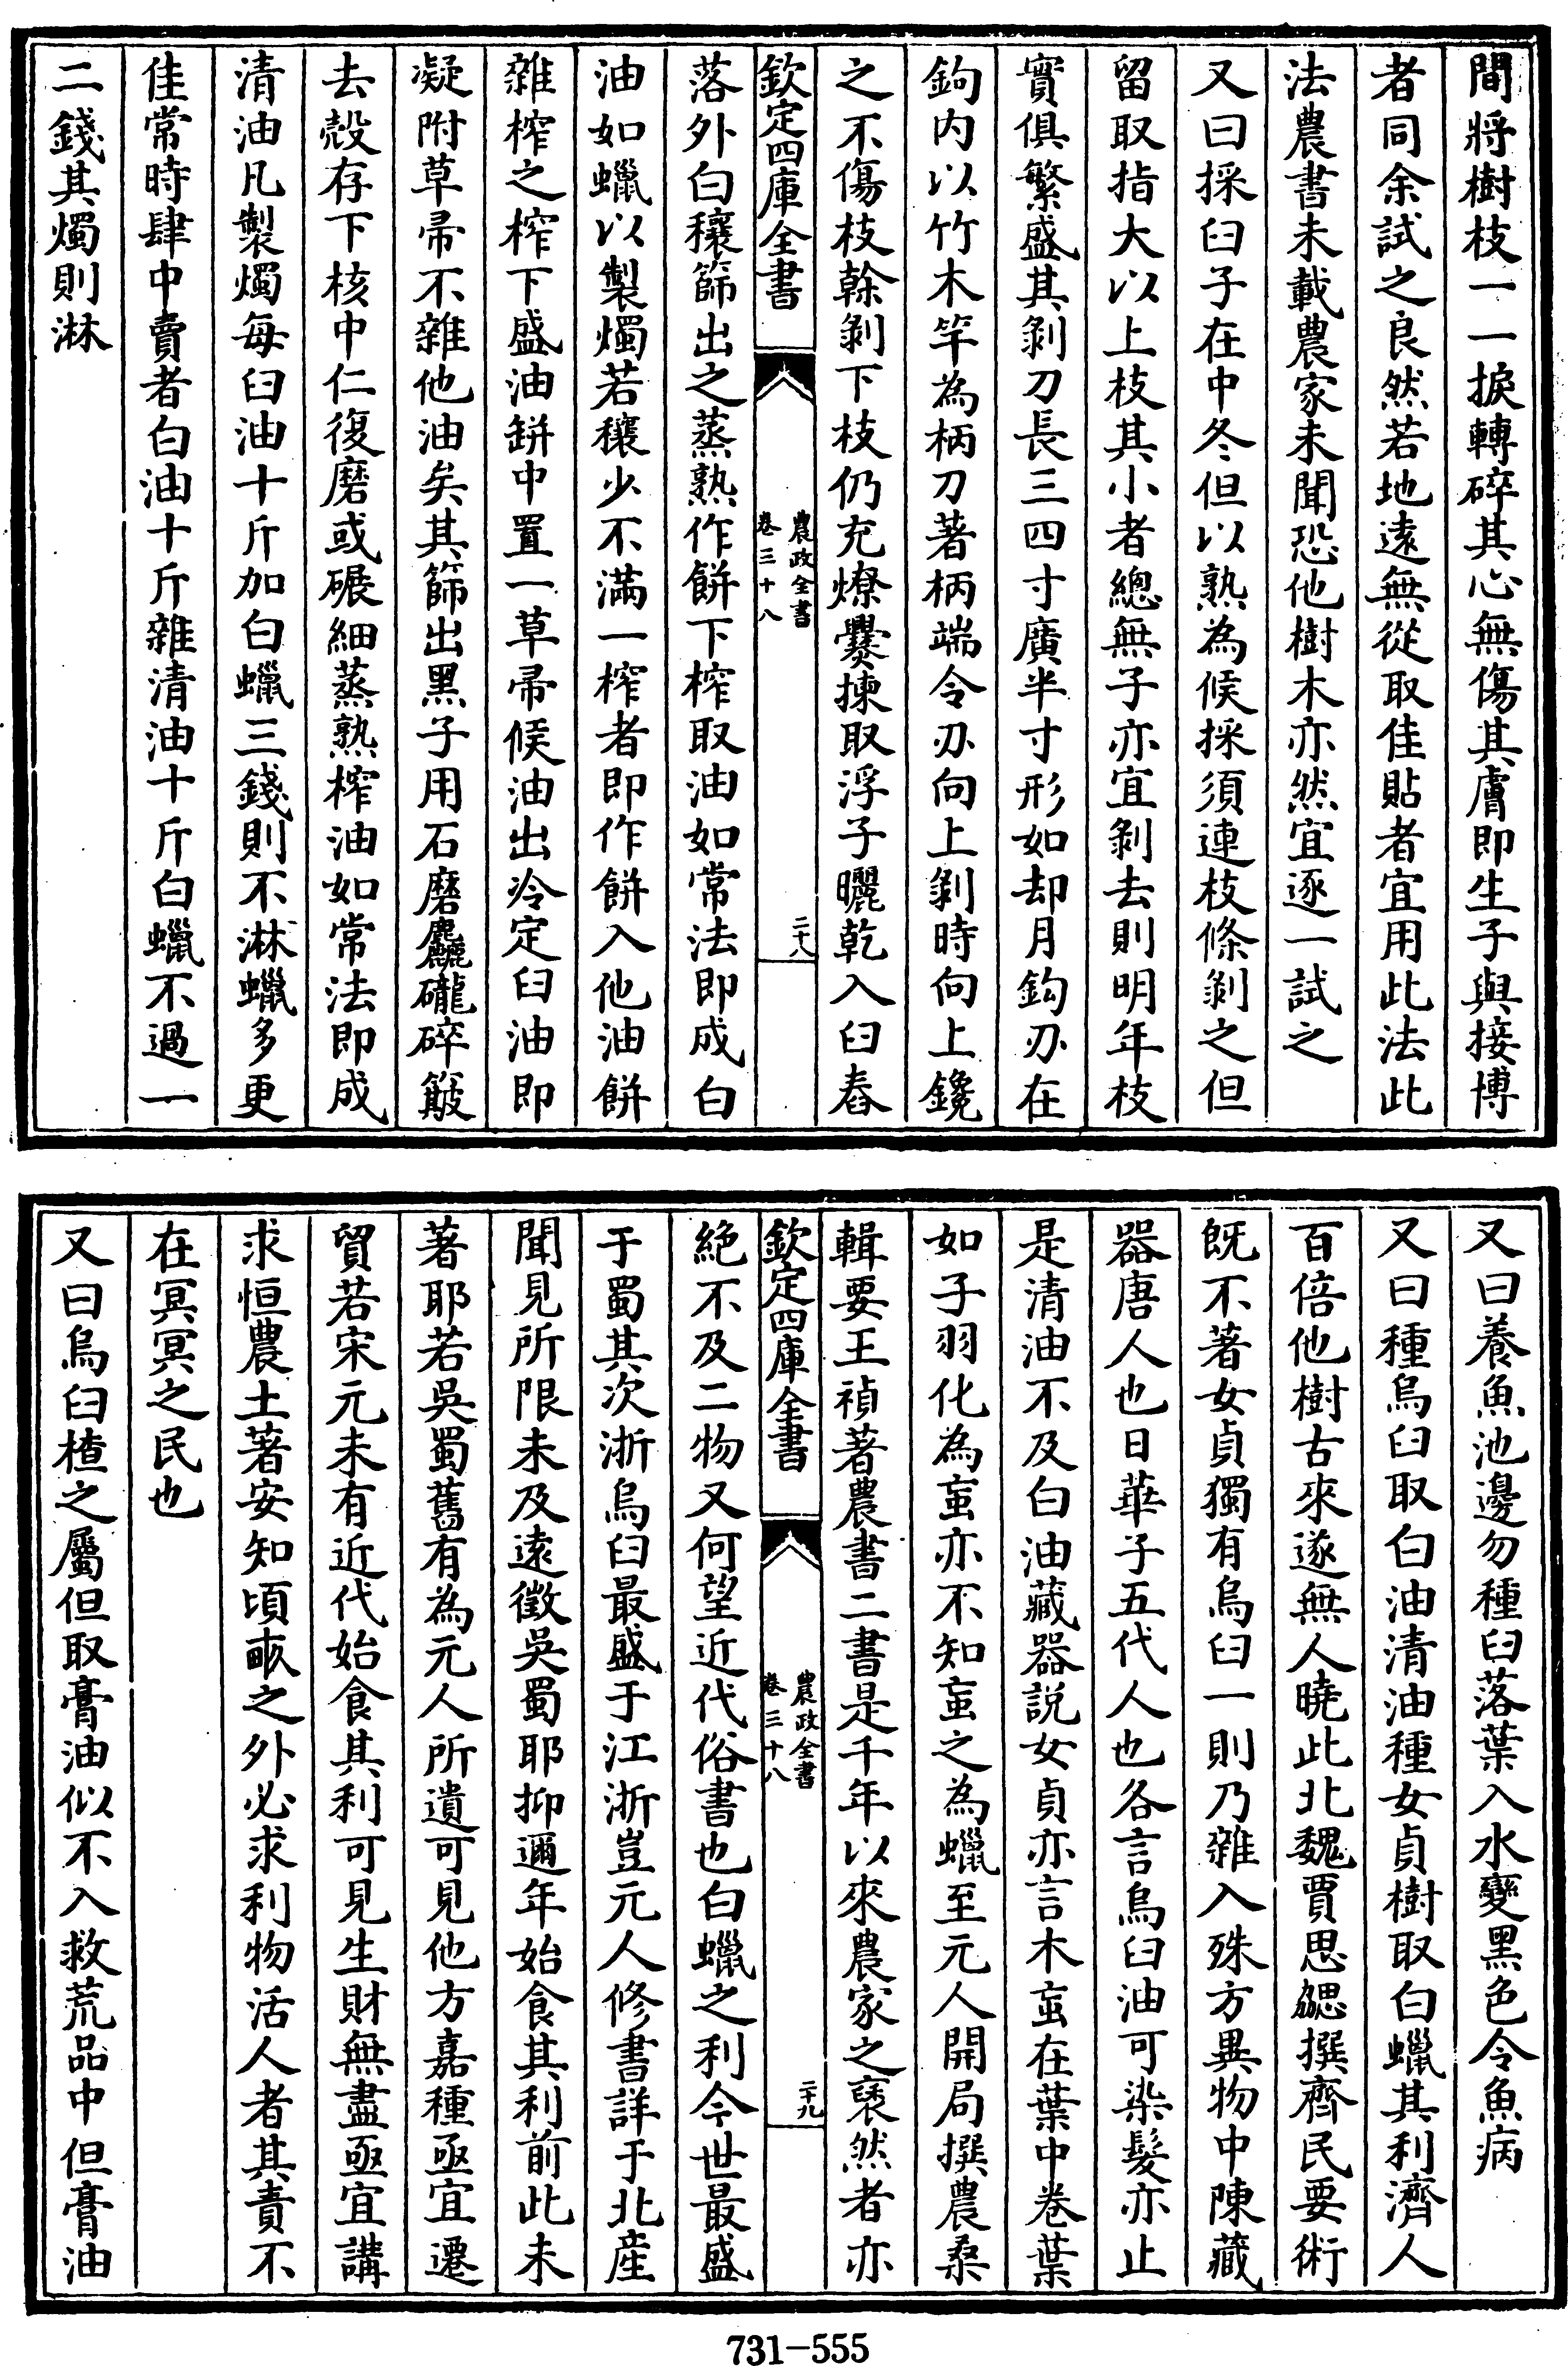 間將樹枝一一捩轉碎其心無傷其膚即生子與接博
者同余試之良然若地遠無從取佳貼者宜用此法此
法農書未載農家未聞恐他樹木亦然宜逐一試之
又曰採臼子在中冬但以熟為候採須連枝條剝之但
留取指大以上枝其小者總無子亦宜剝去則明年枝
實俱繁盛其剝刀長三四寸廣半寸形如却月鈎刃在
鉤内以竹木竿為柄刀著柄端令刃向上剝時向上鑱
之不傷枝榦剝下枝仍充燎爨揀取浮子曬乾入臼舂
欽定四庫全書
農政全書
卷三十八
二十八
落外白穰篩出之蒸熟作餅下榨取油如常法即成白
油如蠟以製燭若穰少不滿一榨者即作餅入他油餅
雜榨之榨下盛油缾中置一草帚候油出冷定臼油即
凝附草帚不雜他油矣其篩出黑子用石磨麤礲碎簸
去殻存下核中仁復磨或碾細蒸熟榨油如常法即成
清油凡製燭每臼油十斤加白蠟三錢則不淋蠟多更
佳常時肆中賣者白油十斤雜清油十斤白蠟不過一
二錢其燭則淋
又曰養魚池邊勿種臼落葉入水變黑色令魚病
又曰種烏臼取白油清油種女貞樹取白蠟其利濟人
百倍他樹古來遂無人曉此北魏賈思勰撰齊民要術
既不著女貞獨有烏臼一則乃雜入殊方異物中陳藏
器唐人也日華子五代人也各言烏臼油可染髮亦止
是清油不及白油藏器説女貞亦言木䖟在葉中卷葉
如子羽化為䖟亦不知䖟之為蠟至元人開局撰農桑
輯要王禎著農書二書是千年以來農家之襃然者亦
欽定四庫全書
農政全書
卷三十八
二十九
絶不及二物又何望近代俗書也白蠟之利今世最盛
于蜀其次浙烏臼最盛于江浙豈元人修書詳于北産
聞見所限未及遠徵吳蜀耶抑邇年始食其利前此未
著耶若吳蜀舊有為元人所遺可見他方嘉種亟宜遷
貿若宋元未有近代始食其利可見生財無盡亟宜講
求恒農土著安知頃畝之外必求利物活人者其責不
在冥冥之民也
又曰烏臼楂之屬但取膏油似不入救荒品中但膏油
731-555